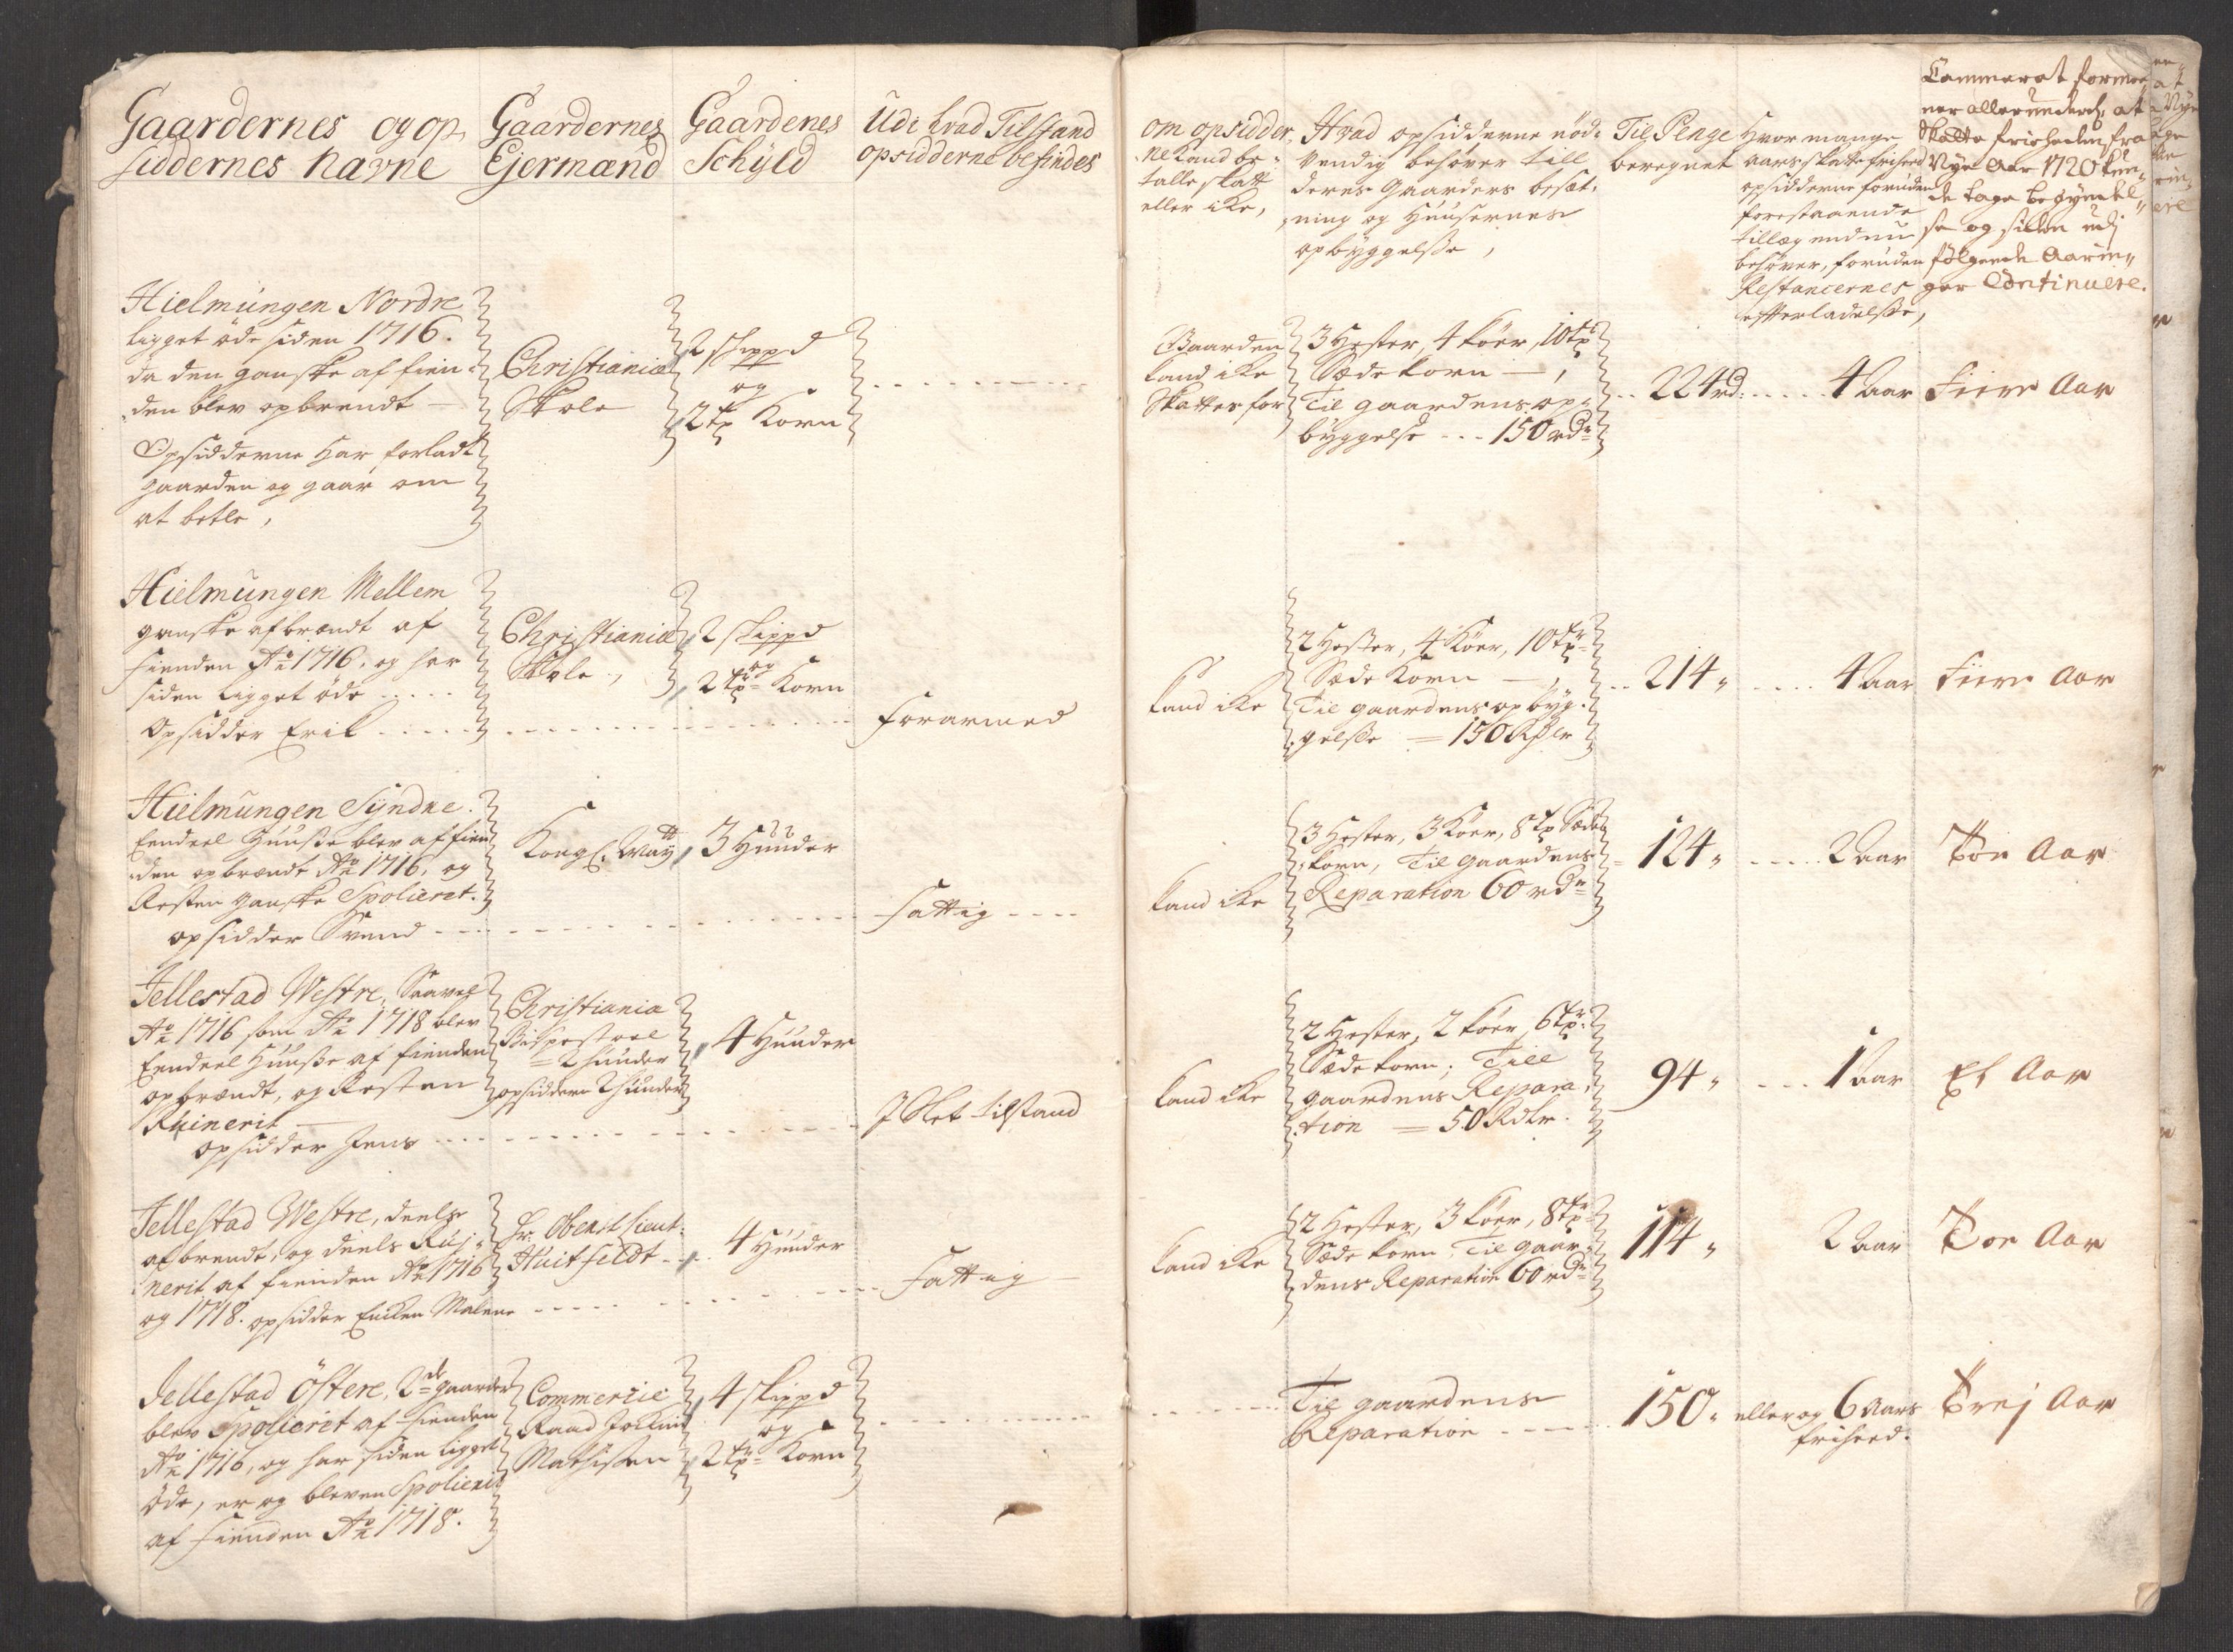 Gaardernes og op,
siddernes Navne
Gaardernes
Ejermænd
Gaardenes
Schÿld
Udi hvad Tilstand
opsidderne befindes
om opsidder,
ne Kand be,
talle skatt
eller icke,
Hvad opsidderne nöd,
vendig behøver till
deres Gaarders besæt,
ning og Huusernes
opbÿggelsse,
Til Penge
beregnet
Hvor mange
aars skatte friheed
opsidderne foruden
forestaaende
tillæg endnu
behøver, foruden
Restancernes
efterladelsse,
Cammeret formee,
ner allerunderd. at
Skatte friheeden fra
Nÿe Aar 1720 kun,
de tage begÿndel,,
se og siden udj
følgende Aarin,,
ger Continuere.
Hielmungen Nordre
ligget öde siden 1716.
da den ganske af fien,
den blev opbrendt —
Opsidderne har forladt
gaarden og gaar om
at betle,
Christiania
Skole
2 skippd
og
2 tr Korn
Gaarden
kand icke
Skattes for
3 Hester, 4 köer, 10 tr
Sædekorn —,
Til gaardens op,
bÿggelse --- 150 rdr
224 rd:
4 aar
Fiire Aar
Hielmungen Mellem
ganske afbrændt af
fienden Ao 1716, og har
siden ligget öde
Opsidder Erik
Christiania
Skole,
2 skippd
og
2 tr Korn
forarmed
kand icke
2 Hester, 4 Köer, 10 tr
Sæde Korn —,
Til gaardens opbÿg,
gelsse = 150 Rdlr
214,,
4 aar
Fiire Aar
Hielmungen Sÿndre.
Eendeel Huusse blev af fien
den opbrændt Ao 1716, og
Resten ganske Spolieret.
opsidder Svend
Kongl. Maÿtt
3 Huuder
fattig
kand icke
3 Hester, 3 Köer, 8 tr Sæde
korn, Til gaardens
Reparation 60 rdr
124,,
2 aar
Toe Aar
Jellestad Westre, Saavel
Ao 1716 som Ao 1718 blev
Eendeel Huusse af fienden
opbrændt, og Resten
Ruinerit —
opsidder Jens
Christiania
Bispestoel
= 2 huuder
opsidderen 2 huuder
4 Huuder
J Slet tilstand
kand icke
2 Hester, 2 köer, 6 tr
Sædekorn; Till
gaardens Repara,
tion = 50 Rdlr.
94,,
1 aar
Et Aar
Jellestad Westre, deels
afbrendt, og deels Rui,
nerit af fienden Ao 1716
og 1718. opsidder Encken Malene
Hr. Oberst Lieut:
Huitfeldt
4 Huuder
fattig
kand icke
2 Hester, 3 köer, 8 tr
Sæde korn, Til gaar,
dens Reparation 60 rdr
114,,
2 aar
Toe Aar
Jellestad Östere, 2de gaarder
blev Spolieret af fienden
Ao 1716, og har siden ligget
öde, er og bleven Spolierit
af fienden Ao 1718.
Commercie
Raad Jockum
Mathissen
4 skippd
og
2 tr Korn
Til gaardens
Reparation
150,,
eller og 6 aars
friheed.
Trej Aar